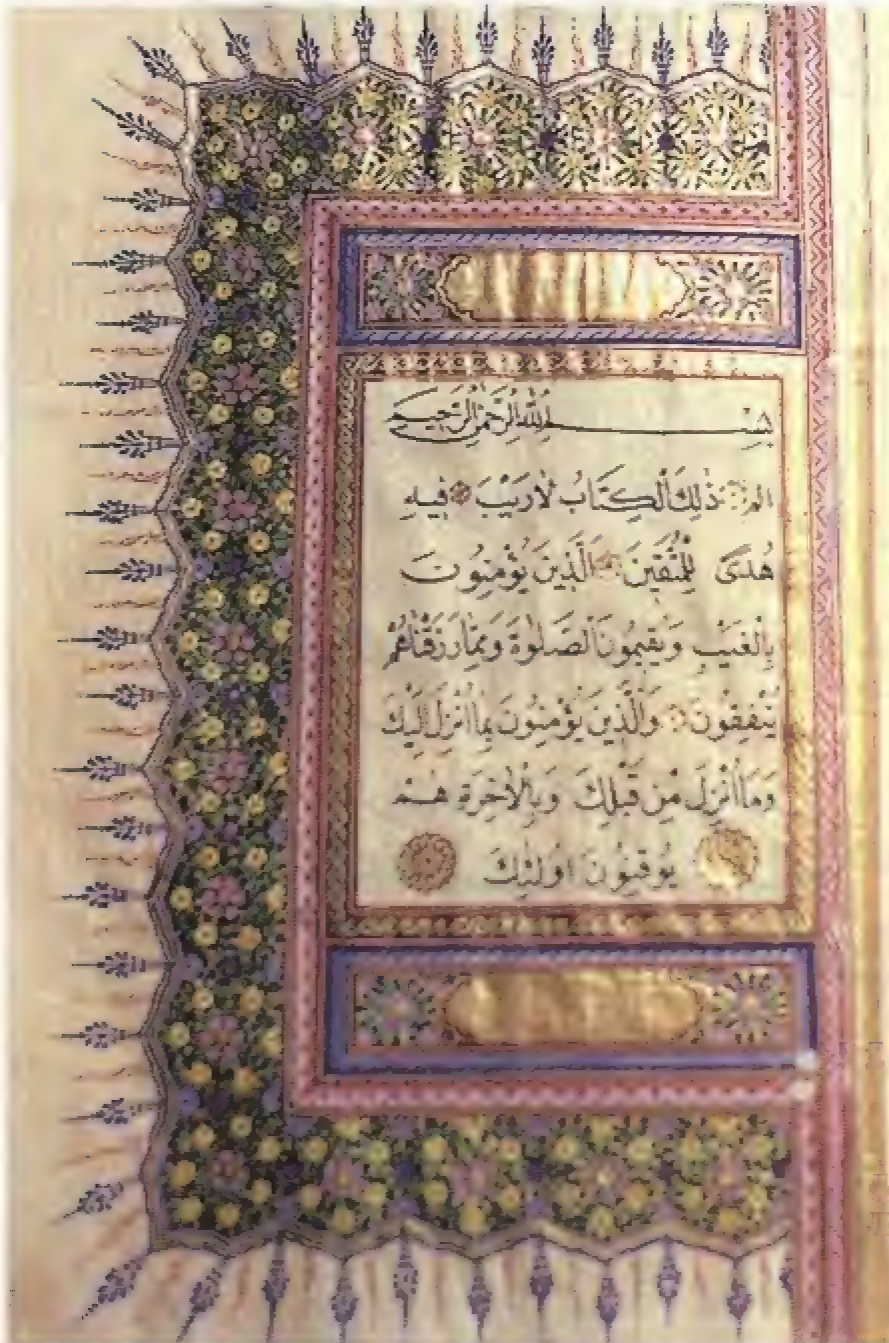 بِسْمِ اللهِ الرَّحْمٰنِ الرَّحِيمِ
الم ذٰلِكَ الْكِتَابُ لَارَيْبَ فِيهِ
هُدًى لِلْمُتَّقِينَ الَّذِينَ يُؤْمِنُونَ
بِالْغَيْبِ وَيُقِيمُونَ الصَّلٰوةَ وَمِمَّا رَزَقْنَاهُمْ
يُنْفِقُونَ وَالَّذِينَ يُؤْمِنُونَ بِمَا اُنْزِلَ اِلَيْكَ
وَمَا اُنْزِلَ مِنْ قَبْلِكَ وَبِالْاٰخِرَةِ هُمْ
يُوقِنُونَ اُولٰئِكَ